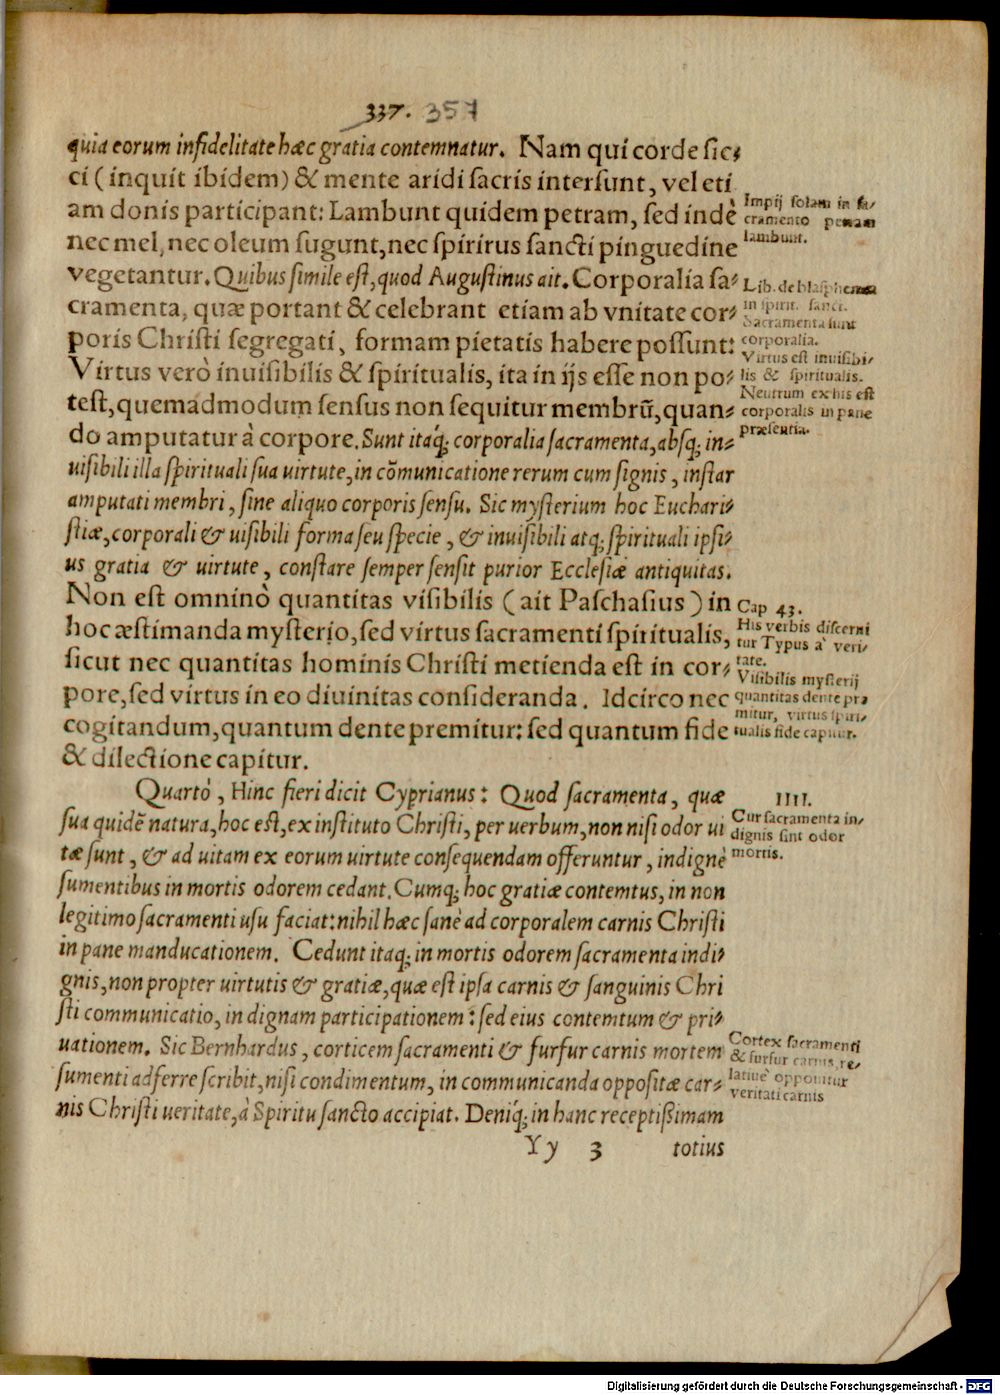 337. 357
quia eorum infidelitate hæc gratia contemnatur. Nam qui corde sic-
ci (inquit ibidem) & mente aridi sacris intersunt, vel eti
am donis participant: Lambunt quidem petram, sed indè
nec mel, nec oleum sugunt, nec spirirus sancti pinguedine
vegetantur. Quibus simile est, quod Augustinus ait. Corporalia sa-
cramenta, quæ portant & celebrant etiam ab vnitate cor-
poris Christi segregati, formam pietatis habere possunt:
Virtus verò inuisibilis & spiritualis, ita in ijs esse non po-
test, quemadmodum sensus non sequitur membrũ, quan-
do amputatur à corpore. Sunt itaq; corporalia sacramenta, absq; in-
uisibili illa spirituali sua uirtute, in cõmunicatione rerum cum signis, instar
amputati membri, sine aliquo corporis sensu. Sic mysterium hoc Euchari-
stiæ, corporali & uisibili forma seu specie, & inuisibili atq; spirituali ipsi-
us gratia & uirtute, constare semper sensit purior Ecclesiæ antiquitas.
Non est omninò quantitas visibilis (ait Paschasius) in
hoc æstimanda mysterio, sed virtus sacramenti spiritualis,
sicut nec quantitas hominis Christi metienda est in cor-
pore, sed virtus in eo diuinitas consideranda. Idcirco nec
cogitandum, quantum dente premitur: sed quantum fide
& dilectione capitur.
Quartò, Hinc fieri dicit Cyprianus: Quod sacramenta, quæ
sua quidẽ natura, hoc est, ex instituto Christi, per uerbum, non nisi odor ui
tæ sunt, & ad uitam ex eorum uirtute consequendam offeruntur, indignè
sumentibus in mortis odorem cedant. Cumq; hoc gratiæ contemtus, in non
legitimo sacramenti usu faciat: nihil hæc sanè ad corporalem carnis Christi
in pane manducationem. Cedunt itaq; in mortis odorem sacramenta indi-
gnis, non propter uirtutis & gratiæ, quæ est ipsa carnis & sanguinis Chri
sti communicatio, in dignam participationem: sed eius contemtum & pri-
uationem. Sic Bernhardus, corticem sacramenti & furfur carnis mortem
sumenti adferre scribit, nisi condimentum, in communicanda oppositæ car-
nis Christi ueritate, à Spiritu sancto accipiat. Deniq; in hanc receptißimam
Yy 3 totius
Impij solam in sa-
cramento petram
lambunt.
Lib. de blasphemia
in spirit. sanct.
Sacramenta sunt
corporalia.
Virtus est inuisibi-
lis & spiritualis.
Neutrum ex his est
corporalis in pane
præsentia.
Cap 43.
His verbis discerni
tur Typus à veri-
tate.
Visibilis mysterij
quantitas dente pre
mitur, virtus spiri-
tualis fide capitur.
IIII.
Cur sacramenta in-
dignis sint odor
mortis.
Cortex sacramenti
& furfur carnis, re-
latiuè opponitur
veritati carnis
Digitalisierung gefördert durch die Deutsche Forschungsgemeinschaft - DFG